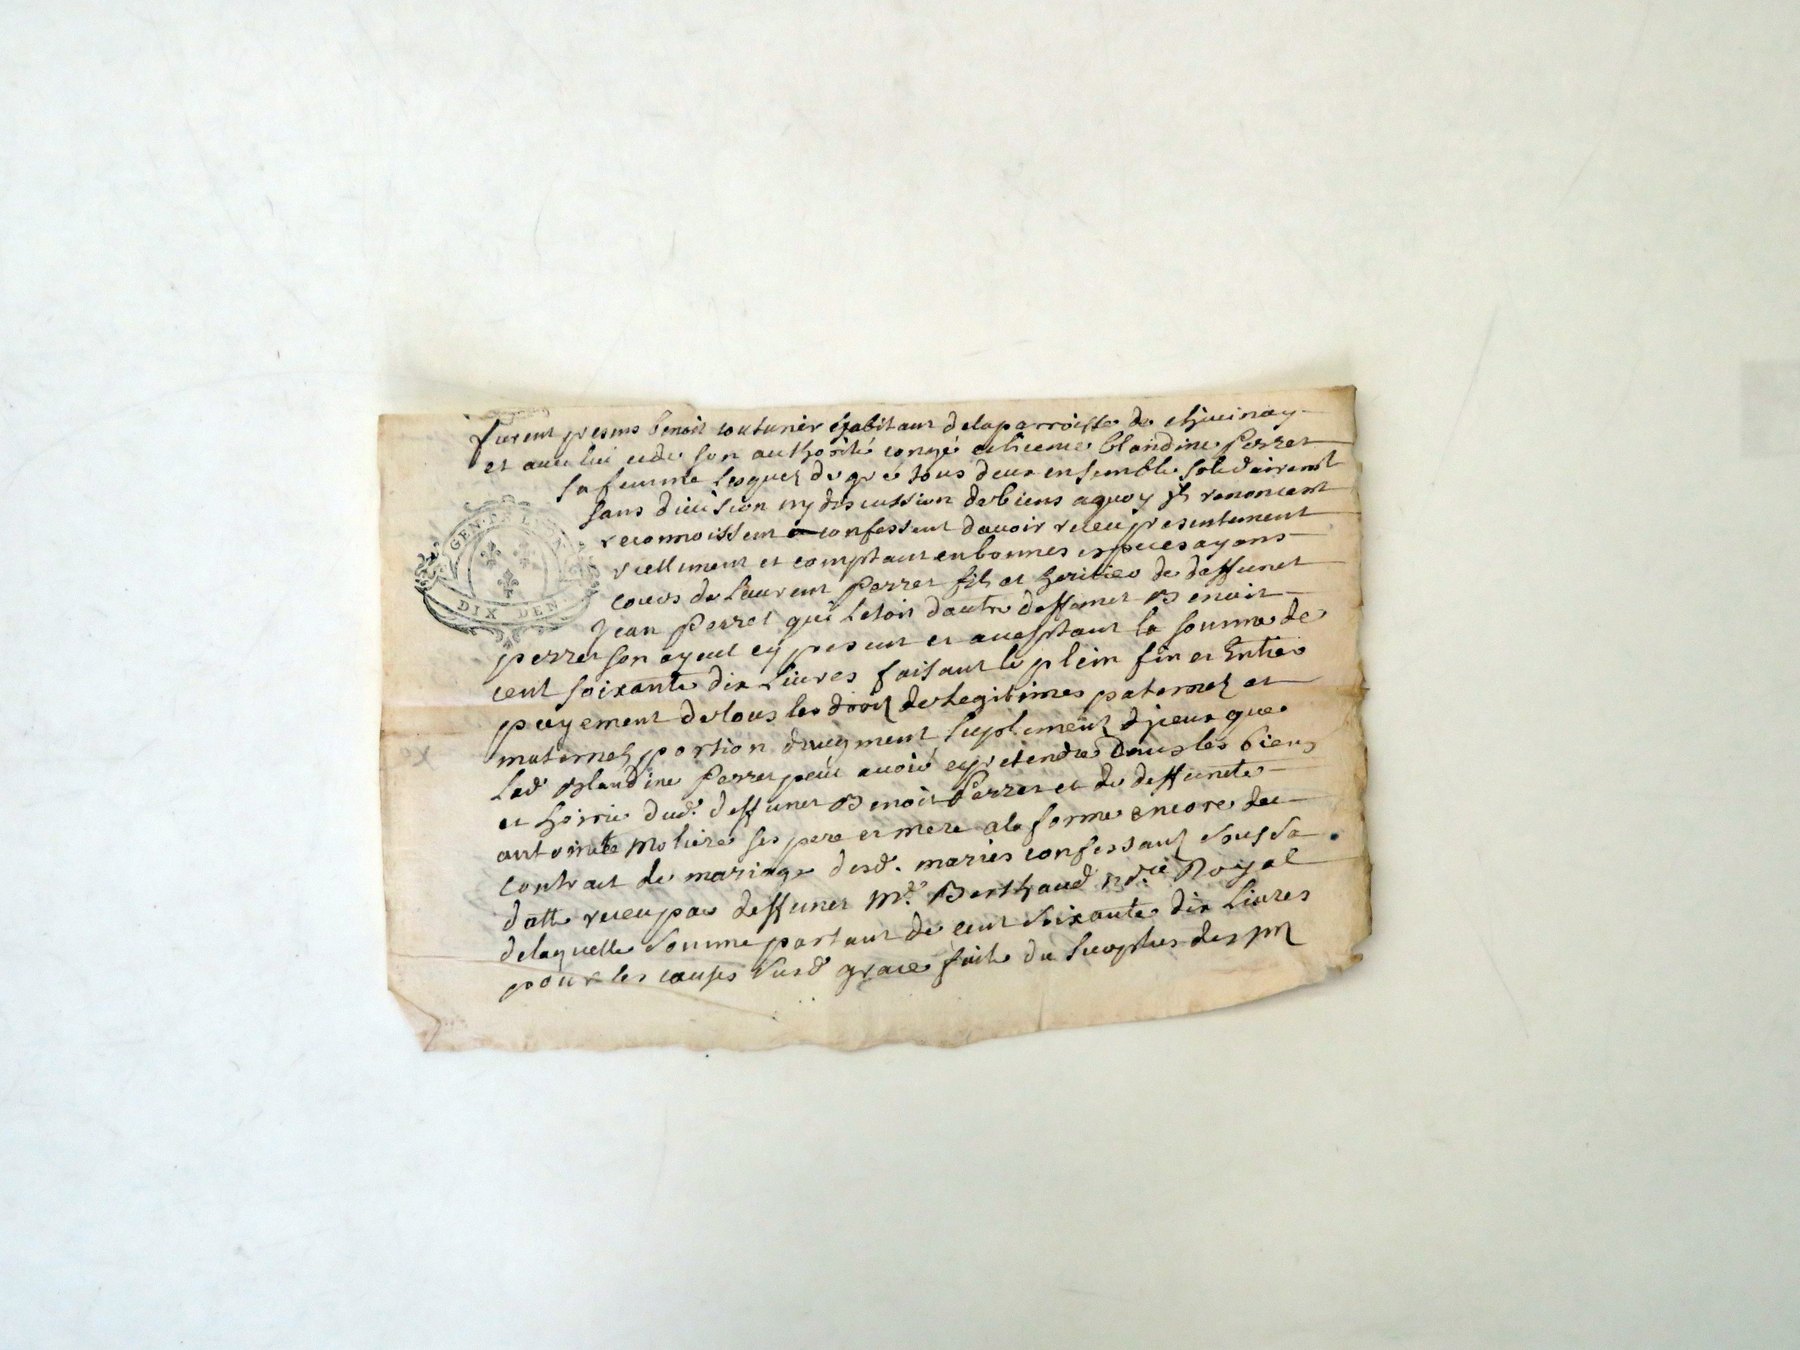 furent presens benoit couturier habitant dela parroisse de chevinay
et avec luy et de son authorité congé et licence blandine Perret
sa femme lesquez de gré tous deux ensemble solidairemt
sans division ny discussion de biens a quoy ils renoncent
GEN. LION
reconnoissent confessent d'avoir receu presentement
reellement et comptant en bonnes especes ayans
cours de Laurent Perret fils et heritier de deffunct
DIX DEN.
Jean Perret qui letoit d'autre deffunct Benoit
perret son ayeul cy present et acceptant la somme de
cent soixante dix Livres faisant le plein fin et Entier
payement de tous les droitz de Legitimes paternelz et
maternelz portion d'augment suplement dyceux que
Lad. Blandine Perret peut avoir et pretendre dans les biens
et hoirie dud. deffunct Benoit Perret et de deffuncte
antoinette Moliere ses pere et mere a la forme encore du
contract de mariage desd. mariés confessant sous sa
datte receu par deffunct Mr. Berthaud nre. Royal
de laquelle somme partant de cent soixante dix Livres
pour les causes susd. grace faite du surplus des pnt